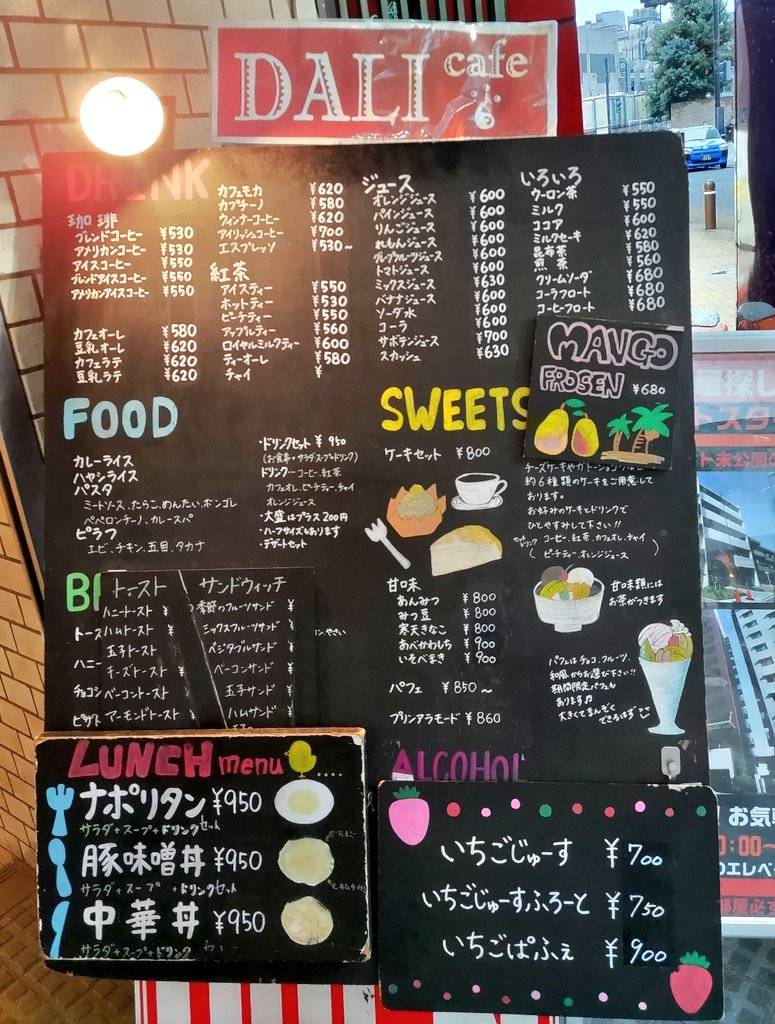 DALI cafe
DRINK
珈琲
ブレンドコーヒー ¥530
アメリカンコーヒー ¥530
アイスコーヒー ¥550
ブレンドアイスコーヒー ¥550
アメリカンアイスコーヒー ¥550
カフェオーレ ¥580
豆乳オーレ ¥620
カフェラテ ¥620
豆乳ラテ ¥620
カフェモカ ¥620
カプチーノ ¥580
ウィンナーコーヒー ¥620
アイリッシュコーヒー ¥700
エスプレッソ ¥530~
紅茶
アイスティー ¥550
ホットティー ¥530
ピーチティー ¥550
アップルティー ¥560
ロイヤルミルクティー ¥600
ティーオーレ ¥580
チャイ ¥
ジュース
オレンジジュース ¥600
パインジュース ¥600
りんごジュース ¥600
れもんジュース ¥600
グレープフルーツジュース ¥600
トマトジュース ¥600
ミックスジュース ¥630
バナナジュース ¥600
ソーダ水 ¥600
コーラ ¥600
サボテンジュース ¥700
スカッシュ ¥630
いろいろ
ウーロン茶 ¥550
ミルク ¥550
ココア ¥600
ミルクセーキ ¥620
昆布茶 ¥580
煎茶 ¥560
クリームソーダ ¥680
コーラフロート ¥680
コーヒーフロート ¥680
MANGO
FROSEN ¥680
FOOD
カレーライス
ハヤシライス
パスタ
ミートソース、たらこ、めんたい、ボンゴレ
ペペロンチーノ、カレースパ
ピラフ
エビ、チキン、五目、タカナ
・ドリンクセット ¥950
(お食事+サラダスープ+ドリンク)
ドリンク…コーヒー、紅茶
カフェオレ、ピーチティー、チャイ
オレンジジュース
・大盛はプラス200円
・ハーフサイズもあります
・デザートセット
SWEETS
ケーキセット ¥800
約6種類のケーキをご用意して
おります。
お好みのケーキとドリンクで
ひとやすみして下さい!!
セットドリンク(コーヒー、紅茶、カフェオレ、チャイ
ピーチティー、オレンジジュース)
甘味類には
お茶がつきます
甘口味
あんみつ ¥800
みつ豆 ¥800
寒天きなこ ¥800
あべかわもち ¥900
いそべまき ¥900
パフェ ¥850~
プリンアラモード ¥860
パフェはチョコ、フルーツ、
和風からお選び下さい!!
期間限定パフェも
あります♪
大きくてまんぞく
できるはず
トースト
ハニートースト ¥
ハムトースト ¥
玉子トースト
チーズトースト ¥
ベーコントースト ¥
アーモンドトースト ¥
サンドウィッチ
季節のフルーツサンド ¥
ミックスフルーツサンド ¥
ベジタブルサンド ¥
ベーコンサンド ¥
玉子サンド ¥
ハムサンド ¥
LUNCH menu
ナポリタン ¥950
サラダ+スープ+ドリンクセット
豚味噌丼 ¥950
サラダ+スープ+ドリンクセット
中華丼 ¥950
サラダ+スープ+ドリンク
ALCOHOL
いちごじゅーす ¥700
いちごじゅーすふろーと ¥750
いちごぱふぇ ¥900
お気